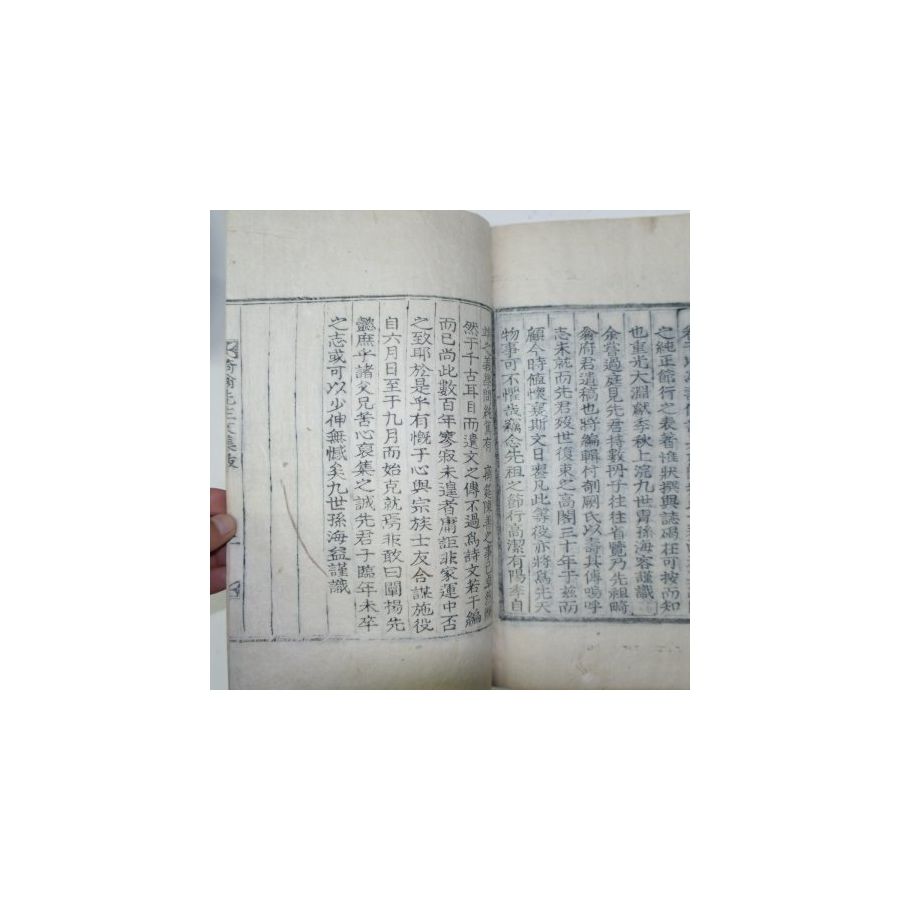 之純正節行之表著惟狀撰與誌碣在可按而知
也重光大淵獻季秋上浣九世胄孫海容謹識
余嘗過庭見先君持數冊子往往省覽乃先祖畸
翁府君遺稿也將編輯付剞劂氏以壽其傳嗚呼
志未就而先君歿世復束之高閣三十年于茲而
顧今時値懷襄斯文日喪凡此等役亦將爲先天
物事可不懼哉竊念先祖之節行高潔有陽李自
然于千古耳目而遺文之傳不過爲詩文若干編
而已尚此數百年寥寂未遑者庸詎非家運中否
之致耶於是乎有慨于心與宗族士友合謀施役
自六月日至于九月而始克就焉非敢曰闡揚先
懿庶乎諸父兄苦心裒集之誠先君子臨年未卒
之志或可以少伸無憾矣九世孫海益謹識
畸翁先生文集跋